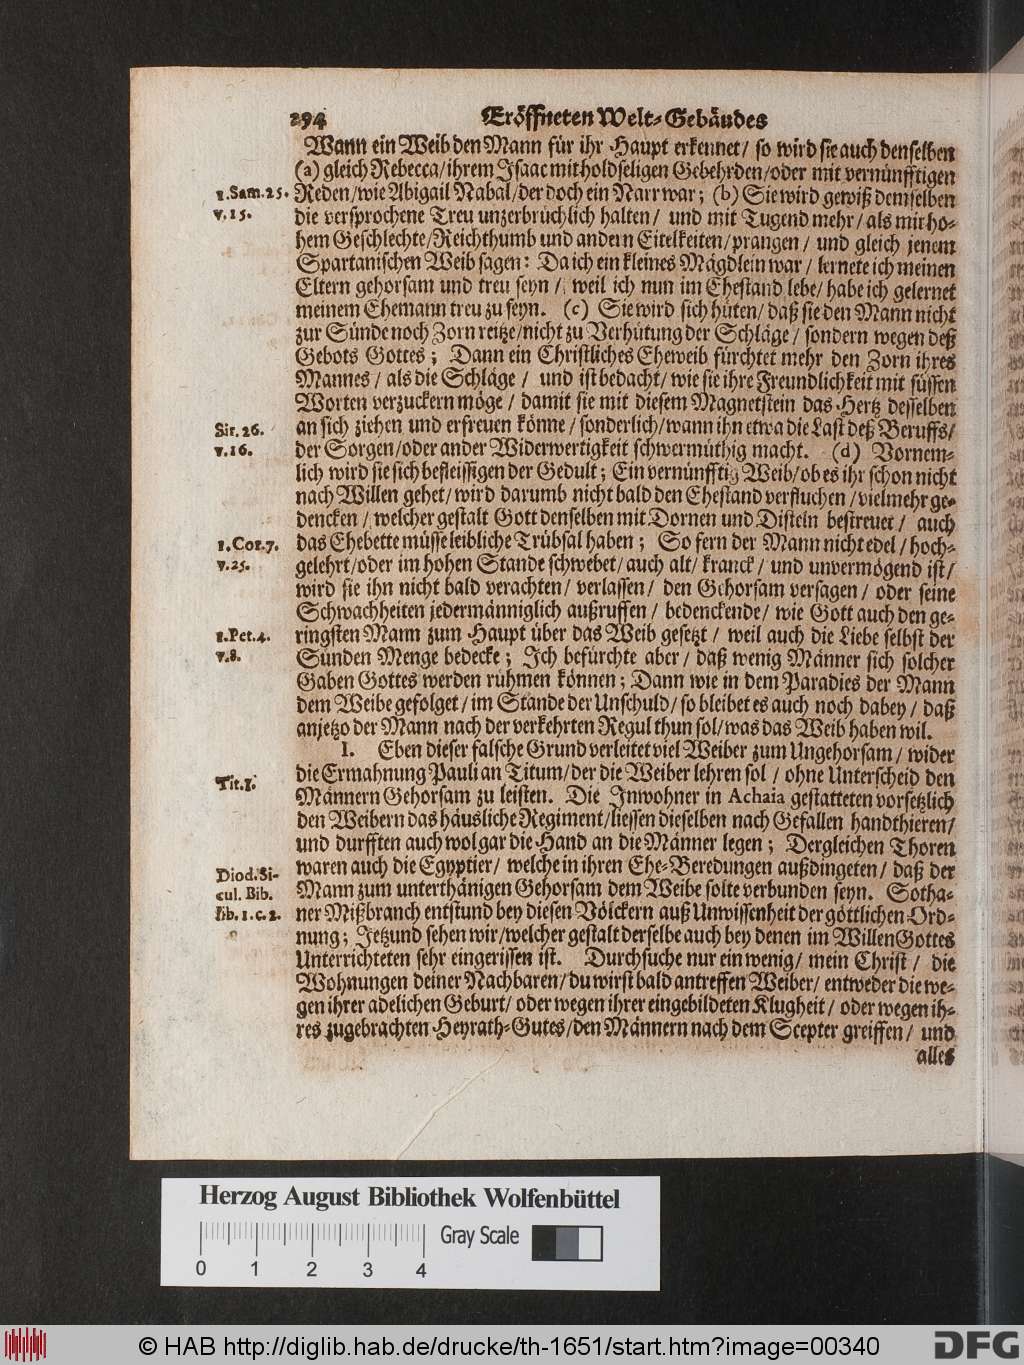 294 Eröffneten Welt-Gebäudes
Wann ein Weib den Mann für ihr Haupt erkennet/ so wird sie auch denselben
(a) gleich Rebecca/ ihrem Isaac mit holdseligen Gebehrden/ oder mit vernünfftigen
1. Sam. 25. Reden/ wie Abigail Nabal/ der doch ein Narr war; (b) Sie wird gewiß demselben
v. 15. die versprochene Treu unzerbrüchlich halten/ und mit Tugend mehr/ als mit ho-
hem Geschlechte/ Reichthumb und andern Eitelkeiten/ prangen/ und gleich jenem
Spartanischen Weib sagen: Da ich ein kleines Mägdlein war/ lernete ich meinen
Eltern gehorsam und treu seyn/ weil ich nun im Ehestand lebe/ habe ich gelernet
meinem Ehemann treu zu seyn. (c) Sie wird sich hüten/ daß sie den Mann nicht
zur Sünde noch Zorn reitze/ nicht zu Verhütung der Schläge/ sondern wegen deß
Gebots Gottes; Dann ein Christliches Eheweib fürchtet mehr den Zorn ihres
Mannes/ als die Schläge/ und ist bedacht/ wie sie ihre Freundlichkeit mit süssen
Worten verzuckern möge/ damit sie mit diesem Magnetstein das Hertz desselben
Sir. 26. an sich ziehen und erfreuen könne/ sonderlich/ wann ihn etwa die Last deß Beruffs/
v. 16. der Sorgen/ oder ander Widerwertigkeit schwermüthig macht. (d) Vornem-
lich wird sie sich befleissigen der Gedult; Ein vernünfftig Weib/ ob es ihr schon nicht
nach Willen gehet/ wird darumb nicht bald den Ehestand verfluchen/ vielmehr ge-
dencken/ welcher gestalt Gott denselben mit Dornen und Disteln bestreuet/ auch
1. Cor. 7. das Ehebette müsse leibliche Trübsal haben; So fern der Mann nicht edel/ hoch-
v. 25. gelehrt/ oder im hohen Stande schwebet/ auch alt/ kranck/ und unvermögend ist/
wird sie ihn nicht bald verachten/ verlassen/ den Gehorsam versagen/ oder seine
Schwachheiten jedermänniglich außruffen/ bedenckende/ wie Gott auch den ge-
1. Pet. 4. ringsten Mann zum Haupt über das Weib gesetzt/ weil auch die Liebe selbst der
v. 8. Sünden Menge bedecke; Ich befürchte aber/ daß wenig Männer sich solcher
Gaben Gottes werden rühmen können; Dann wie in dem Paradies der Mann
dem Weibe gefolget/ im Stande der Unschuld/ so bleibet es auch noch dabey/ daß
anjetzo der Mann nach der verkehrten Regul thun sol/ was das Weib haben wil.
I. Eben dieser falsche Grund verleitet viel Weiber zum Ungehorsam/ wider
Tit. 1. die Ermahnung Pauli an Titum/ der die Weiber lehren sol/ ohne Unterscheid den
Männern Gehorsam zu leisten. Die Inwohner in Achaia gestatteten vorsetzlich
den Weibern das häusliche Regiment/ liessen dieselben nach Gefallen handthieren/
und durfften auch wol gar die Hand an die Männer legen; Dergleichen Thoren
Diod. Si- waren auch die Egyptier/ welche in ihren Ehe-Beredungen außdingeten/ daß der
cul. Bib. Mann zum unterthänigen Gehorsam dem Weibe solte verbunden seyn. Sotha-
lib. 1. c. 2. ner Mißbranch entstund bey diesen Völckern auß Unwissenheit der göttlichen Ord-
nung; Jetzund sehen wir/ welcher gestalt derselbe auch bey denen im Willen Gottes
Unterrichteten sehr eingerissen ist. Durchsuche nur ein wenig/ mein Christ/ die
Wohnungen deiner Nachbaren/ du wirst bald antreffen Weiber/ entweder die we-
gen ihrer adelichen Geburt/ oder wegen ihrer eingebildeten Klugheit/ oder wegen ih-
res zugebrachten Heyrath-Gutes/ den Männern nach dem Scepter greiffen/ und
alles
Herzog August Bibliothek Wolfenbüttel
0 1 2 3 4 Gray Scale
© HAB http://diglib.hab.de/drucke/th-1651/start.htm?image=00340 DFG